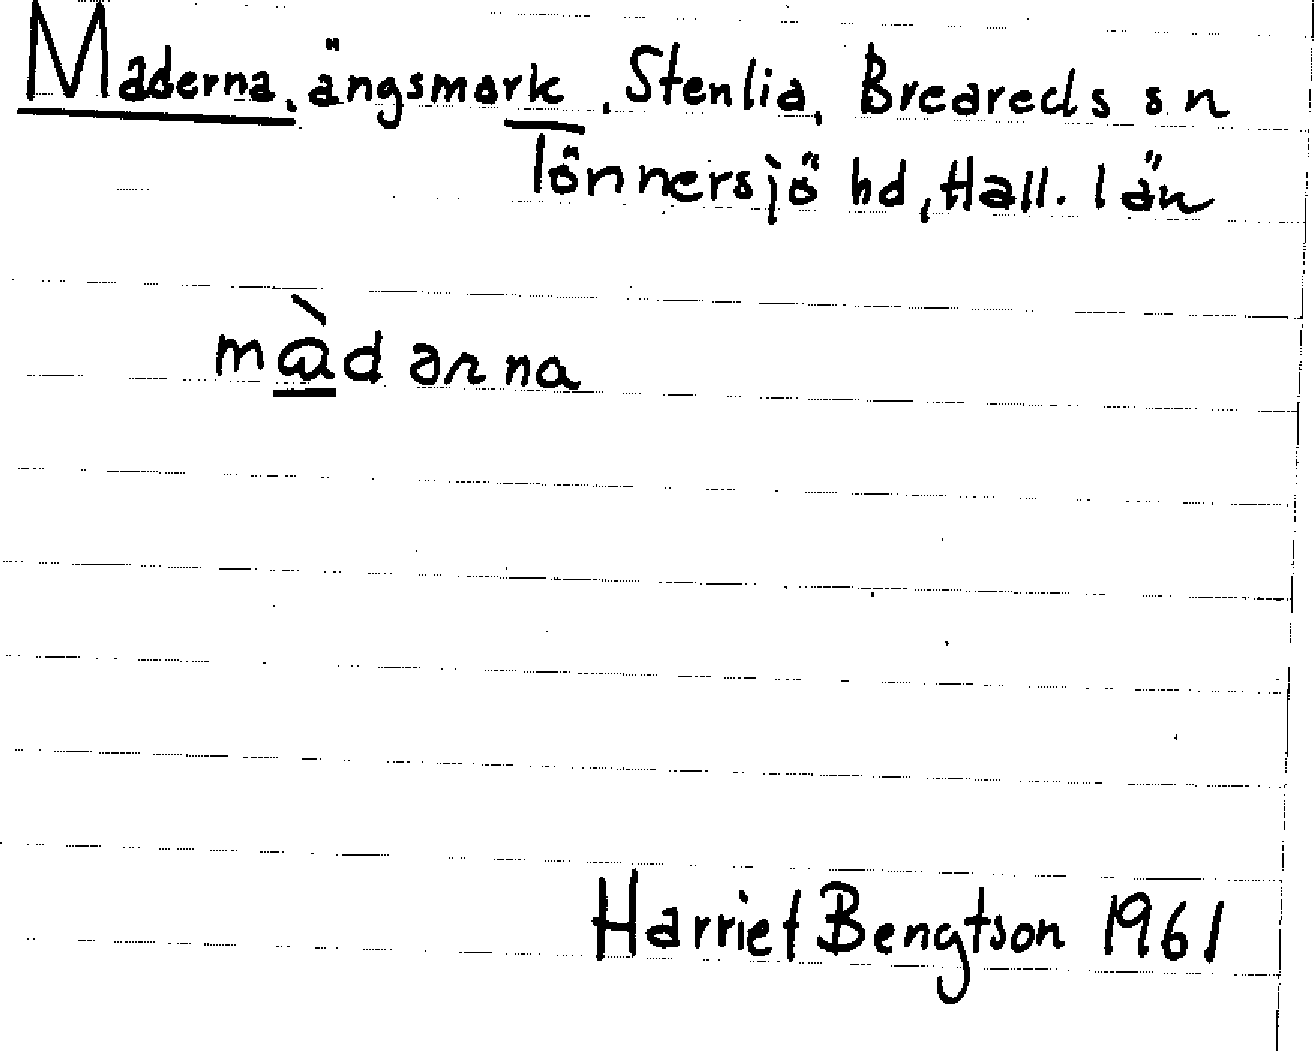 Maderna, ängsmark, Stenlia, Breareds sn
Tönnersjö hd, Hall. län
màdərna
Harriet Bengtson 1961